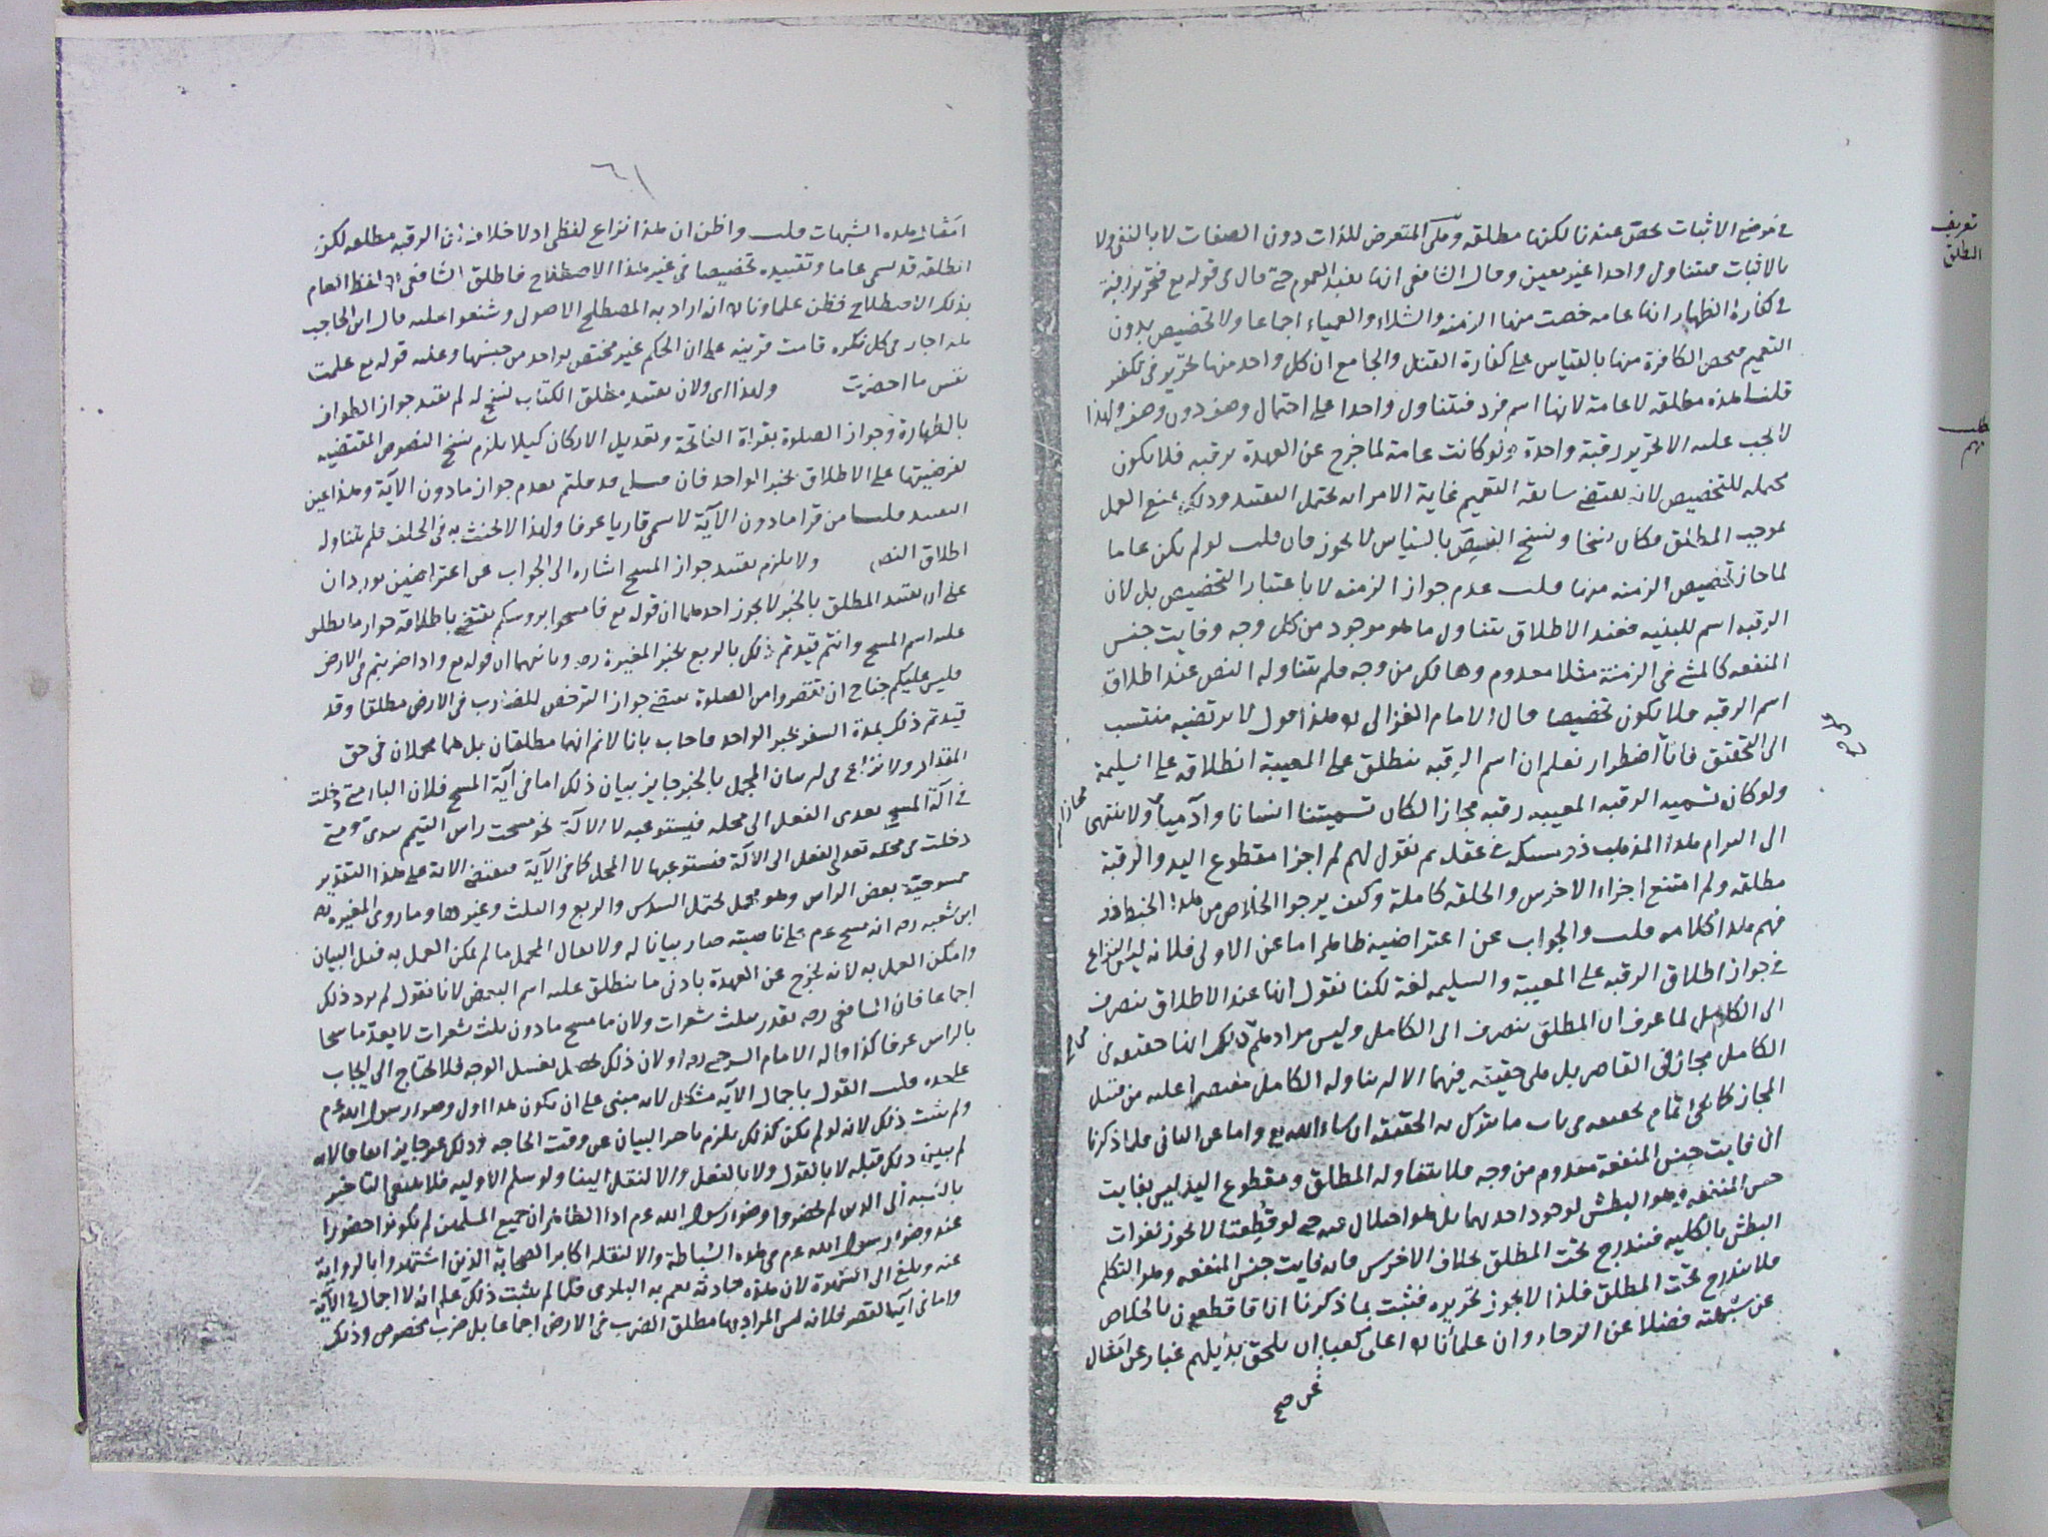 في موضع الاثبات تخص عندنا لكنها مطلقه وهي المتعرض للذات دون الصفات لا بالنفي ولا
بالاثبات فتتناول واحدا غير معين وقال الشافعي انها تفيد العموم حتى قال في قوله تع فتحرير رقبة
في كفارة الظهار انها عامه خصت منها الزمنه والشلاء والعمياء اجماعا ولا تخصيص بدون
التعميم فيخص الكافرة منها بالقياس على كفارة القتل والجامع ان كل واحد منها تحرير في تكفير
قلنا هذه مطلقه لا عامة لانها اسم فرد فيتناول واحدا على احتمال وصف دون وصف ولهذا
لا يجب عليه الا تحرير رقبة واحدة ولو كانت عامة لما خرج عن العهدة برقبه فلا يكون
محمله للتخصيص لانه يقتضي سابقة التعميم غاية الامر انه يحتمل التقييد وذلك يمنع العمل
بموجب المطلق فكان نسخا ونسخ النص بالقياس لا يجوز فان قلت لو لم يكن عاما
لما جاز تخصيص الزمنه منها قلت عدم جواز الزمنه لا باعتبار التخصيص بل لان
الرقبه اسم للبنيه فعند الاطلاق يتناول ما هو موجود من كل وجه وفايت جنس
المنفعه كالمشي في الزمنة مثلا معدوم وهالك من وجه فلم يتناوله النص عند اطلاق
اسم الرقبه فلا يكون تخصيصا قال الامام الغزالي هذا قول لا يرتضيه منتسب
الى التحقيق فانا اضطرار نعلم ان اسم الرقبه ينطلق على المعيبة انطلاقه على السليمة
ولو كان تسمية الرقبه المعيبه رقبه مجازا لكان تسميتنا انسانا وآدميا ولا ينتهي
الى المرام هذا المذهب ذو مسكة في عقل ثم نقول لهم لم اجزا مقطوع اليد والرقبة
مطلقه ولم امتنع اجزاء الاخرس والخلقه كاملة وكيف يرجوا الخلاص من هذا الخبط من
فهم هذا كلامه قلت والجواب عن اعتراضيه ظاهر اما عن الاولى فلانه ليس النزاع
في جواز اطلاق الرقبه على المعيبة والسليمه لغة لكنا نقول انها عند الاطلاق ينصرف
الى الكامل لما عرف ان المطلق ينصرف الى الكامل وليس مرادهم ذلك انها حقيقه في
الكامل مجاز في القاصر بل هي حقيقة فيهما الا انه يتناوله الكامل مقتصرا عليه من قبيل
المجاز كما يجئ تمام تحقيقه في باب ما يترك به الحقيقه ان شاء الله تع واما عن الثاني فلما ذكرنا
ان فايت جنس المنفعة معدوم من وجه فلا يتناوله المطلق ومقطوع اليد ليس بفايت
جنس المنفعه وهو البطش لوجود احديهما بل هو اختلال فيه حتى لو قطعتا لا يجوز لفوات
البطش بالكليه فيندرج تحت المطلق بخلاف الاخرس فانه فايت جنس المنفعه وهو التكلم
فلا يندرج تحت المطلق فلذا لا يجوز تحريره فثبت بما ذكرنا انا قاطعون بالخلاص
عن شبهته فضلا عن الرجاء وان علمائنا اعلى كعبا ان يلحق بذيلهم غبار عن امثال
تعريف
المطلق
مطلب
عن صح
٦١
امثال هذه الشبهات قلت واظن ان هذا نزاع لفظي اذ لا خلاف في ان الرقبه مطلقه لكن
المطلقه قد يسمى عاما وتقييده تخصيصا في غير هذا الاصطلاح فاطلق الشافعي لفظ العام
بذلك الاصطلاح فظن علماونا انه اراد به المصطلح الاصولي وشنعوا عليه قال ابن الحاجب
هذا جار في كل نكره قامت قرينه على ان الحكم غير مختص بواحد من جنسها وعليه قوله تع علمت
نفس ما احضرت ولهذا اى ولان تقييد مطلق الكتاب نسخ له لم نقيد جواز الطواف
بالطهارة وجواز الصلوة بقراة الفاتحة وتعديل الاركان كيلا يلزم نسخ النصوص المقتضيه
لفرضيتها على الاطلاق بخبر الواحد فان قلت قد قلتم بعدم جواز ما دون الآية وهذا عين
التقييد قلنا من قرأ ما دون الآية لا يسمى قاريا عرفا ولهذا لا يحنث به في الحلف فلم يتناوله
اطلاق النص ولا يلزم تقييد جواز المسح اشاره الى الجواب عن اعتراضين يوردان
على ان تقييد المطلق بالخبر لا يجوز احدهما ان قوله تع فامسحوا برؤسكم يقتضي باطلاقه جواز ما يطلق
عليه اسم المسح وانتم قيدتم ذلك بالربع بخبر المغيرة رضه وثانيهما ان قوله تع واذا ضربتم في الارض
فليس عليكم جناح ان تقصروا من الصلوة يقتضي جواز الترخص للضارب في الارض مطلقا وقد
قيدتم ذلك بمدة السفر بخبر الواحد فاجاب بانا لا نم انهما مطلقان بل هما مجملان في حق
المقدار ولا نزاع في ان بيان المجمل بالخبر جايز بيان ذلك اما في آية المسح فلان الباء متى دخلت
في آلة المسح تعدى الفعل الى محله فيستوعبه لا الالة نحو مسحت راس اليتيم بيدى ومتى
دخلت في محله تعدى الفعل الى الآلة فيستوعبها لا المحل كما في الآية فيقتضي الاية على هذا التقدير
ممسوحية بعض الراس وهو مجمل يحتمل السدس والربع والثلث وغيرها وما روى المغيره
ابن شعبه رضه انه مسح عم على ناصيته صار بيانا له ولا يقال المجمل ما لم يمكن العمل به قبل البيان
وامكن العمل به لانه يخرج عن العهدة بادنى ما ينطلق عليه اسم البعض لانا نقول لم يرد ذلك
اجماعا فان الشافعي رحه يقدر بثلث شعرات ولان ما مسح ما دون ثلث شعرات لا يعد ماسحا
بالراس عرفا كذا قاله الامام السرخسي رحه او لان ذلك يحصل بغسل الوجه فلا يحتاج الى ايجاب
على حده قلت القول باجمال الآية مشكل لانه مبنى على ان يكون هذا اول وضوء رسول الله عم
ولم يثبت ذلك لانه لو لم يكن كذلك يلزم تاخير البيان عن وقت الحاجه وذلك غير جايز اتفاقا لانه
لم يبين ذلك قبله لا بالقول ولا بالفعل والا لنقل الينا ولو سلم الاوليه فلا ينتفي التاخير
بالنسبة الى الذين لم يحضروا وضوء رسول الله عم اذ الظاهر ان جميع المسلمين لم يكونوا حضورا
عند وضوء رسول الله عم في هذه السباطة والا لنقله اكابر الصحابة الذين اشتهروا بالرواية
عنه وبلغ الى الشهرة لان هذه حادثة يعم به البلوى فلما لم يثبت ذلك علم انه لا اجمال في الآية
واما في آية القصر فلانه ليس المراد بها مطلق الضرب في الارض اجماعا بل ضرب مخصوص وذلك